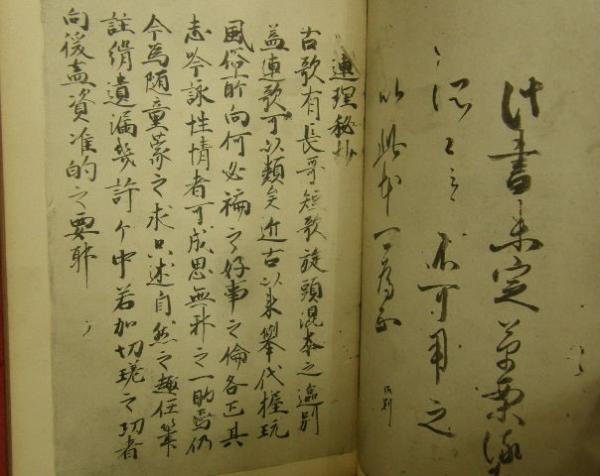 此書未定草案流
不可用之
以此本可為正
連理秘抄
古歌有長哥短歌旋頭混本之趣別
蓋連歌可以類矣近古以来挙代握玩
風俗所向何必褊之好事之倫各正其
志吟詠性情者可成思無邪之一助焉仍
今為随童蒙之求只述自然之趣任筆
註緝遺漏幾許个中若加切瑳之功者
向後盍資准的之要耶